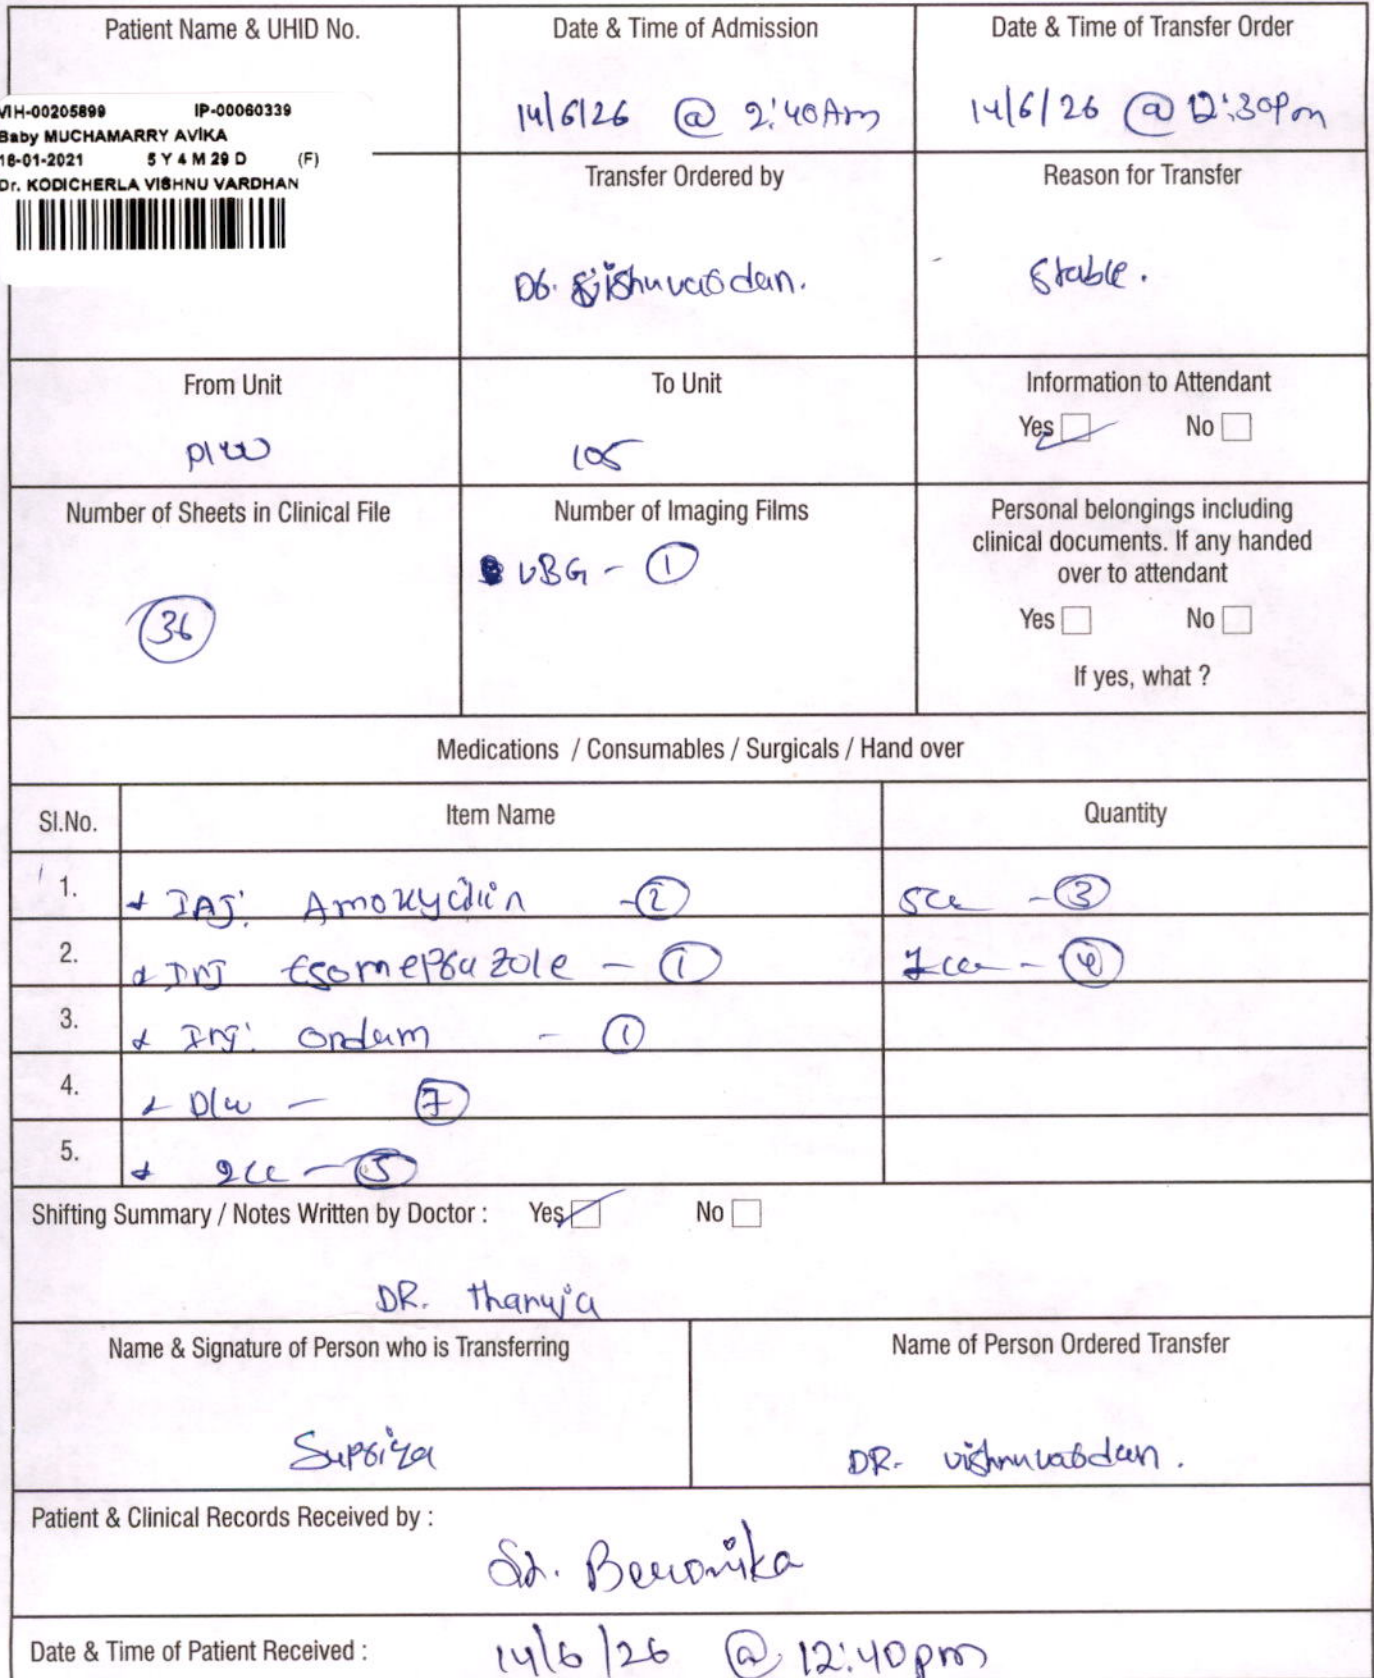 Patient Name & UHID No.
Date & Time of Admission
Date & Time of Transfer Order
VIH-00205899 IP-00060339
Baby MUCHAMARRY AVIKA
16-01-2021 5 Y 4 M 29 D (F)
Dr. KODICHERLA VISHNU VARDHAN
14/6/26 @ 2:40Am
14/6/26 @ 12:30pm
Transfer Ordered by
Reason for Transfer
Dr. vishnuvardan.
Stable.
From Unit
To Unit
Information to Attendant
105
Yes No
Number of Sheets in Clinical File
Number of Imaging Films
Personal belongings including
clinical documents. If any handed
over to attendant
36
VBG - 1
Yes No
If yes, what ?
Medications / Consumables / Surgicals / Hand over
Sl.No. Item Name Quantity
1. Inj. Amoxycilin - 2 5cc - 3
2. Inj Esomeprazole - 1 cc - 4
3. Inj. ondem - 1
4. D/w - 7
5. 2cc - 5
Shifting Summary / Notes Written by Doctor : Yes No
DR. thanuja
Name & Signature of Person who is Transferring
Name of Person Ordered Transfer
Supriya
DR. vishnuvardan.
Patient & Clinical Records Received by :
Date & Time of Patient Received : 14/6/26 @ 12:40pm